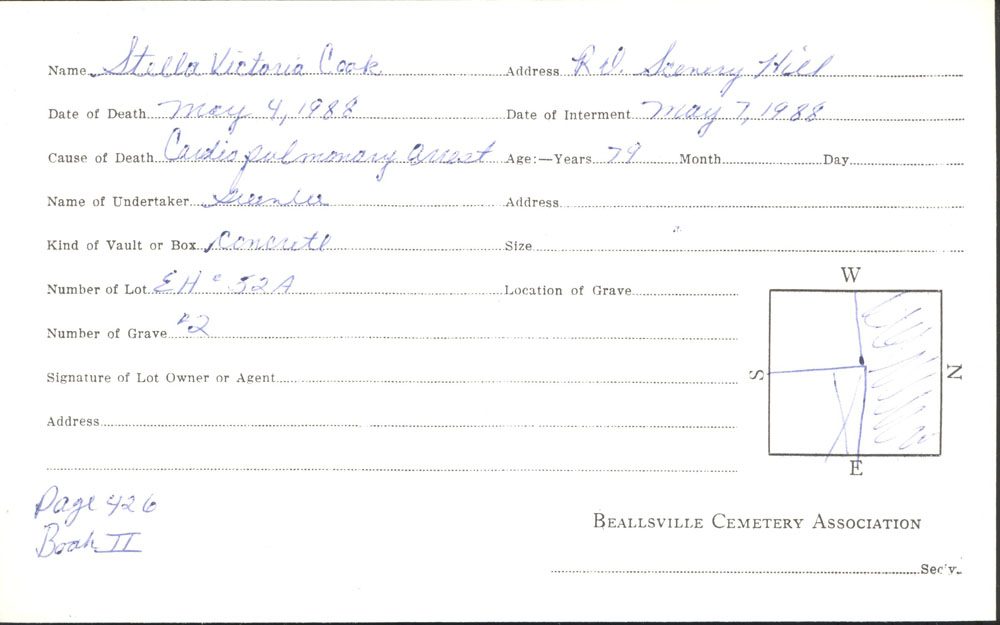 Name Stella Victoria Cook Address R.D. Scenery Hill
Date of Death May 4, 1988 Date of Interment May 7, 1988
Cause of Death Cardiopulmonary arrest Age:—Years 79 Month Day
Name of Undertaker Address
Kind of Vault or Box Concrete Size
Number of Lot EH # 52A Location of Grave
Number of Grave #2
Signature of Lot Owner or Agent
Address
W
S
N
E
Page 426
Book II
BEALLSVILLE CEMETERY ASSOCIATION
Sec'y.